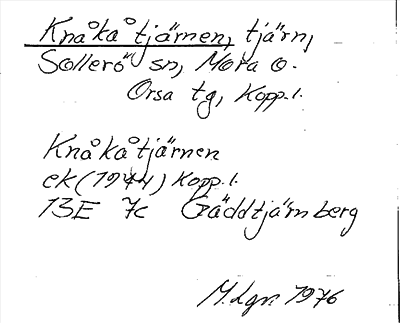 Knåkåtjärnen, tjärn,
Sollerö sn, Mora o.
Orsa tg, Kopp.l.
Knåkåtjärnen
ek (1944) Kopp.l.
13E 7c Gäddtjärnberg
M. Lgr. 1976